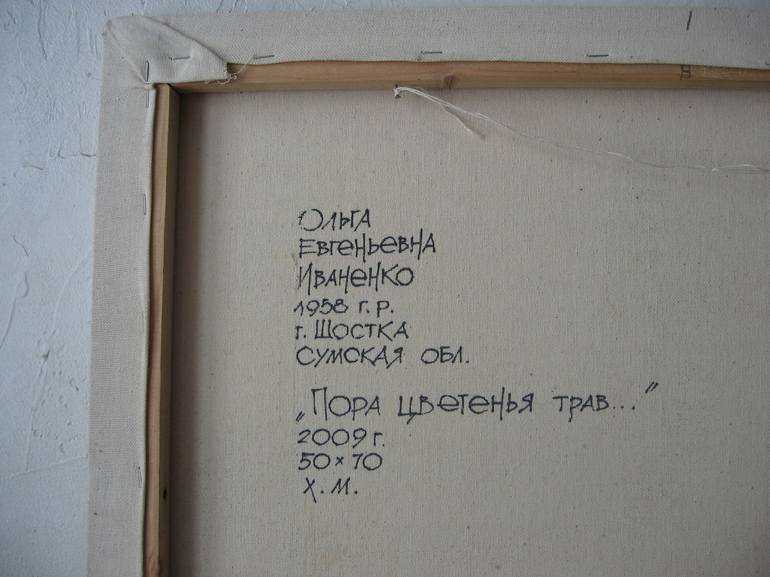 Ольга
Евгеньевна
Иваненко
1958 г.р.
г. Шостка
Сумская обл.
„Пора цветенья трав..."
2009 г.
50×70
х.м.